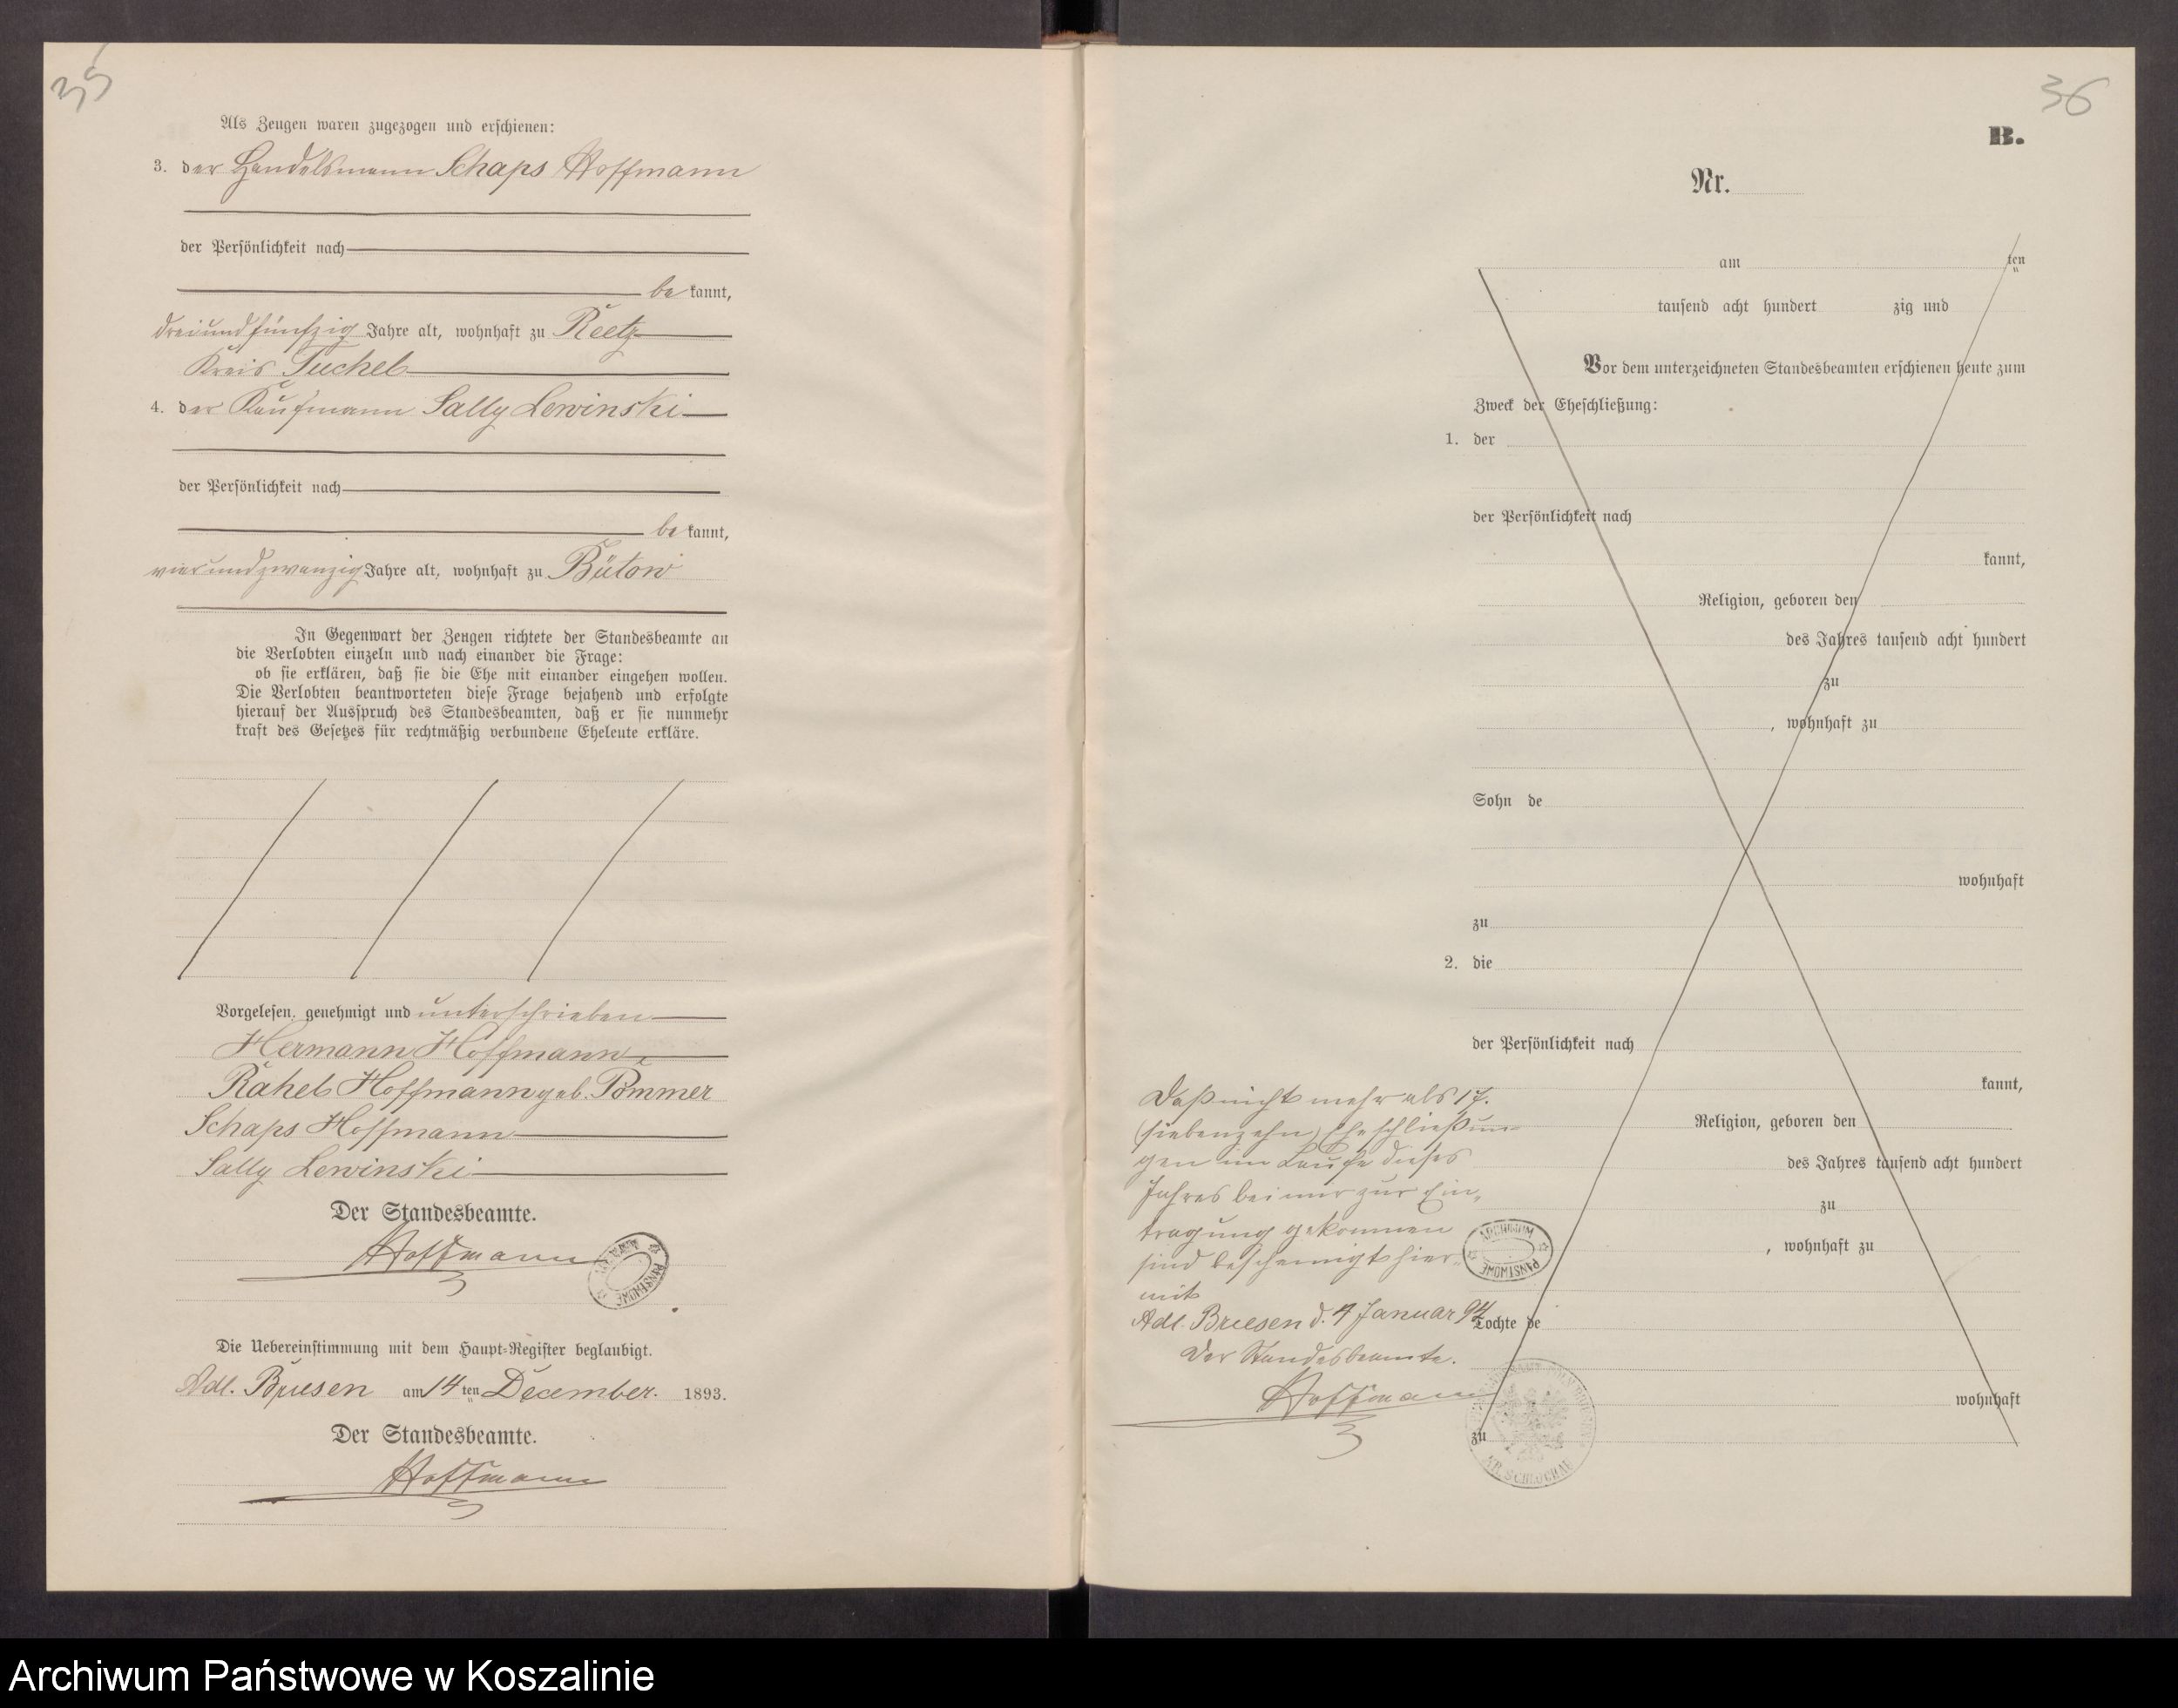 35
Als Zeugen waren zugezogen und erschienen:
3. der Handelsmann Schaps Hoffmann
der Persönlichkeit nach
be kannt,
dreiundfünfzig Jahre alt, wohnhaft zu Reetz
Kreis Tuchel
4. der Kaufmann Sally Lewinski
der Persönlichkeit nach
be kannt,
vierundzwanzig Jahre alt, wohnhaft zu Bütow
In Gegenwart der Zeugen richtete der Standesbeamte an
die Verlobten einzeln und nach einander die Frage:
ob sie erklären, daß sie die Ehe mit einander eingehen wollen.
Die Verlobten beantworteten diese Frage bejahend und erfolgte
hierauf der Ausspruch des Standesbeamten, daß er sie nunmehr
kraft des Gesetzes für rechtmäßig verbundene Eheleute erkläre.
Vorgelesen, genehmigt und unterschrieben
Hermann Hoffmann
Rahel Hoffmann geb. Pommer
Schaps Hoffmann
Sally Lewinski
Der Standesbeamte.
Hoffmann
ARCHIWUM PAŃSTWOWE
Die Uebereinstimmung mit dem Haupt-Register beglaubigt.
Adl. Briesen am 14 ten December. 1893.
Der Standesbeamte.
Hoffmann
36
B.
Nr.
am ten
tausend acht hundert zig und
Vor dem unterzeichneten Standesbeamten erschienen heute zum
Zweck der Eheschließung:
1. der
der Persönlichkeit nach
kannt,
Religion, geboren den
des Jahres tausend acht hundert
zu
, wohnhaft zu
Sohn de
wohnhaft
zu
2. die
der Persönlichkeit nach
kannt,
Religion, geboren den
des Jahres tausend acht hundert
zu
, wohnhaft zu
Tochte de
wohnhaft
zu
Daß nicht mehr als 17.
(siebenzehn) Eheschließun-
gen im Laufe dieses
Jahres bei mir zur Ein-
tragung gekommen
sind bescheinigt hier-
mit
Adl. Briesen d. 4 Januar 94
Der Standesbeamte.
Hoffmann
ARCHIWUM PAŃSTWOWE
KR. SCHLOCHAU
Archiwum Państwowe w Koszalinie